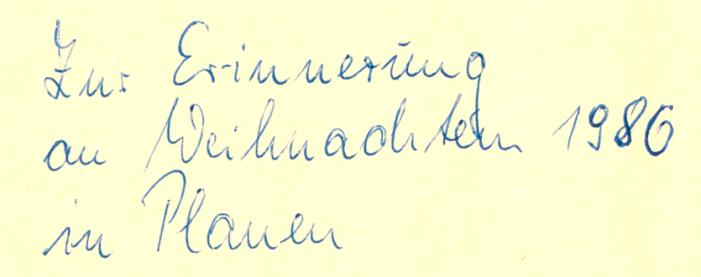 Zur Erinnerung
an Weihnachten 1986
in Plauen